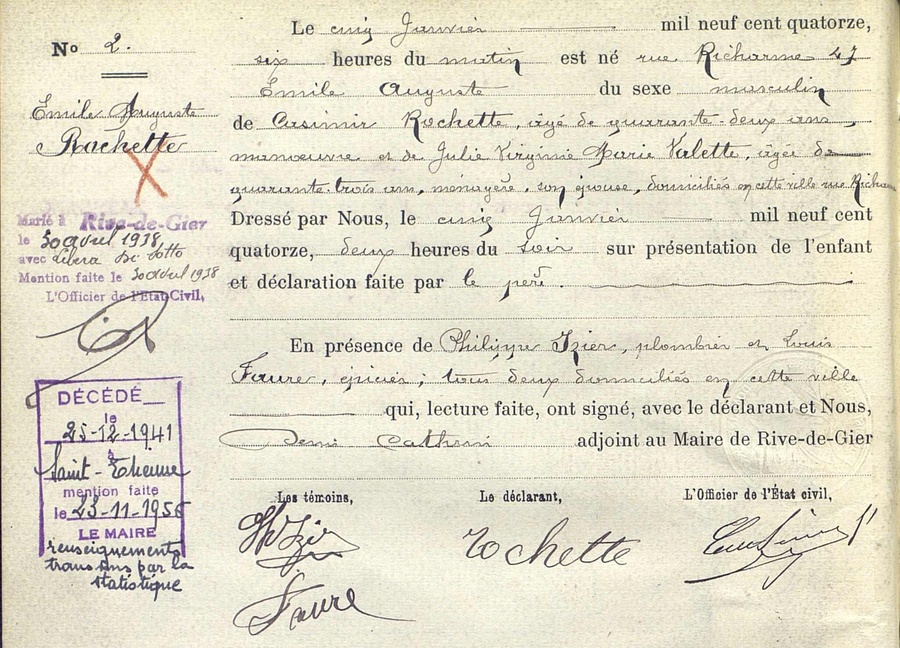 No 2.
Emile Auguste
Rochette
Marié à Rive-de-Gier
le 30 avril 1938,
avec Libera
Mention faite le 30 avril 1938
L'Officier de l'Etat-Civil,
DÉCÉDÉ
le
25-12-1941
à
Saint-Etienne
mention faite
le 23-11-1956
LE MAIRE
renseignements
transmis par la
statistique
Le cinq Janvier mil neuf cent quatorze,
six heures du matin est né rue Richarme 47
Emile Auguste du sexe masculin
de Casimir Rochette, âgé de quarante-deux ans,
manœuvre et de Julie Virginie Marie Valette, âgée de
quarante-trois ans, ménagère, son épouse, domiciliés en cette ville rue Richarme
Dressé par Nous, le cinq Janvier mil neuf cent
quatorze, deux heures du soir sur présentation de l'enfant
et déclaration faite par le père.
En présence de Philippe Izier, plombier et Louis
Faure, épicier; tous deux domiciliés en cette ville
qui, lecture faite, ont signé, avec le déclarant et Nous,
adjoint au Maire de Rive-de-Gier
Les témoins, Le déclarant, L'Officier de l'État civil,
Rochette
Faure